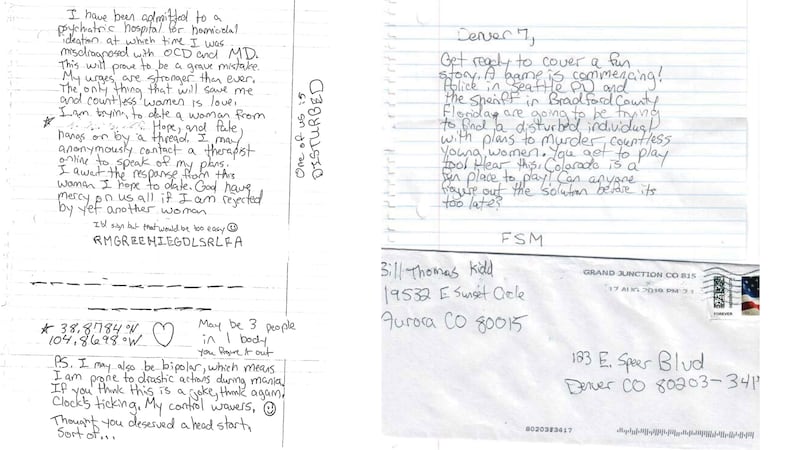 I have been admitted to a
psychiatric hospital for homicidal
ideation at which time I was
misdiagnosed with OCD and MD.
This will prove to be a grave mistake.
My urges are stronger than ever.
The only thing that will save me
and countless women is love.
I am trying to date a woman from
* Hope, and fate
hangs on by a thread. I may
anonymously contact a therapist
online to speak of my plans.
I await the response from this
woman I hope to date. God have
mercy on us all if I am rejected
by yet another woman
I'd sign but that would be too easy ☺
RMGREEMIEGDLSRLFA
One of us is
DISTURBED
* 38.8784 °N
104.8698 °W
May be 3 people
in 1 body
you figure it out
PS. I may also be bipolar, which means
I am prone to drastic actions during mania.
If you think this is a joke, think again.
Clock's ticking. My control wavers. ☺
Thought you deserved a head start,
Sort of...
Denver 7,
Get ready to cover a fun
story. A game is commencing!
Police in Seattle PD and
the sheriff in Bradford County
Florida are going to be trying
to find a disturbed individual
with plans to murder countless
young women. You get to play
too! Hear this. Colorado is a
fun place to play! Can anyone
figure out the solution before its
too late?
FSM
Bill Thomas Kidd
19532 E Sunset Circle
Aurora CO 80015
GRAND JUNCTION CO 815
17 AUG 2019 PM
FOREVER
183 E. Speer Blvd
Denver CO 80203-341
80203$3417